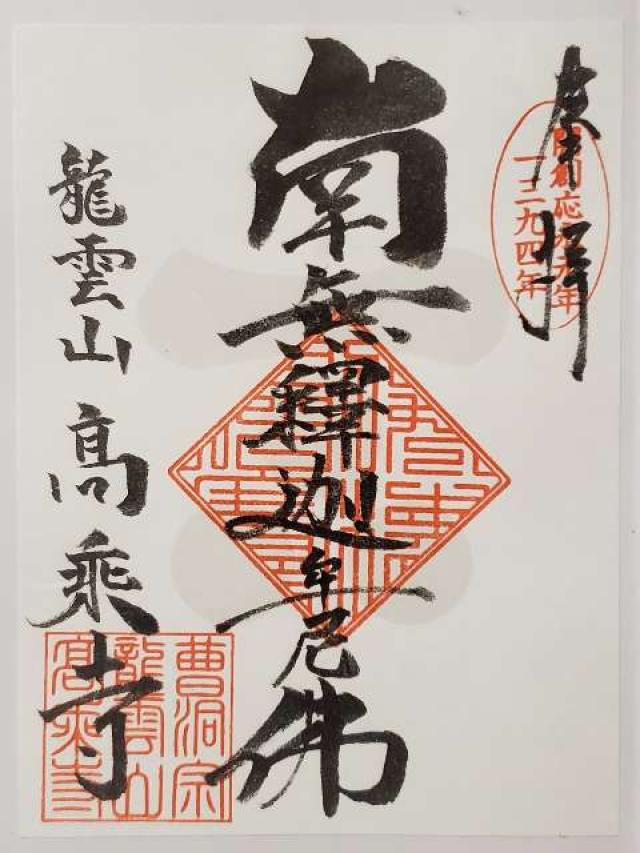 奉拝
開創応永元年
一三九四年
南無釋迦牟尼佛
龍雲山 高乘寺
曹洞宗
龍雲山
高乘寺